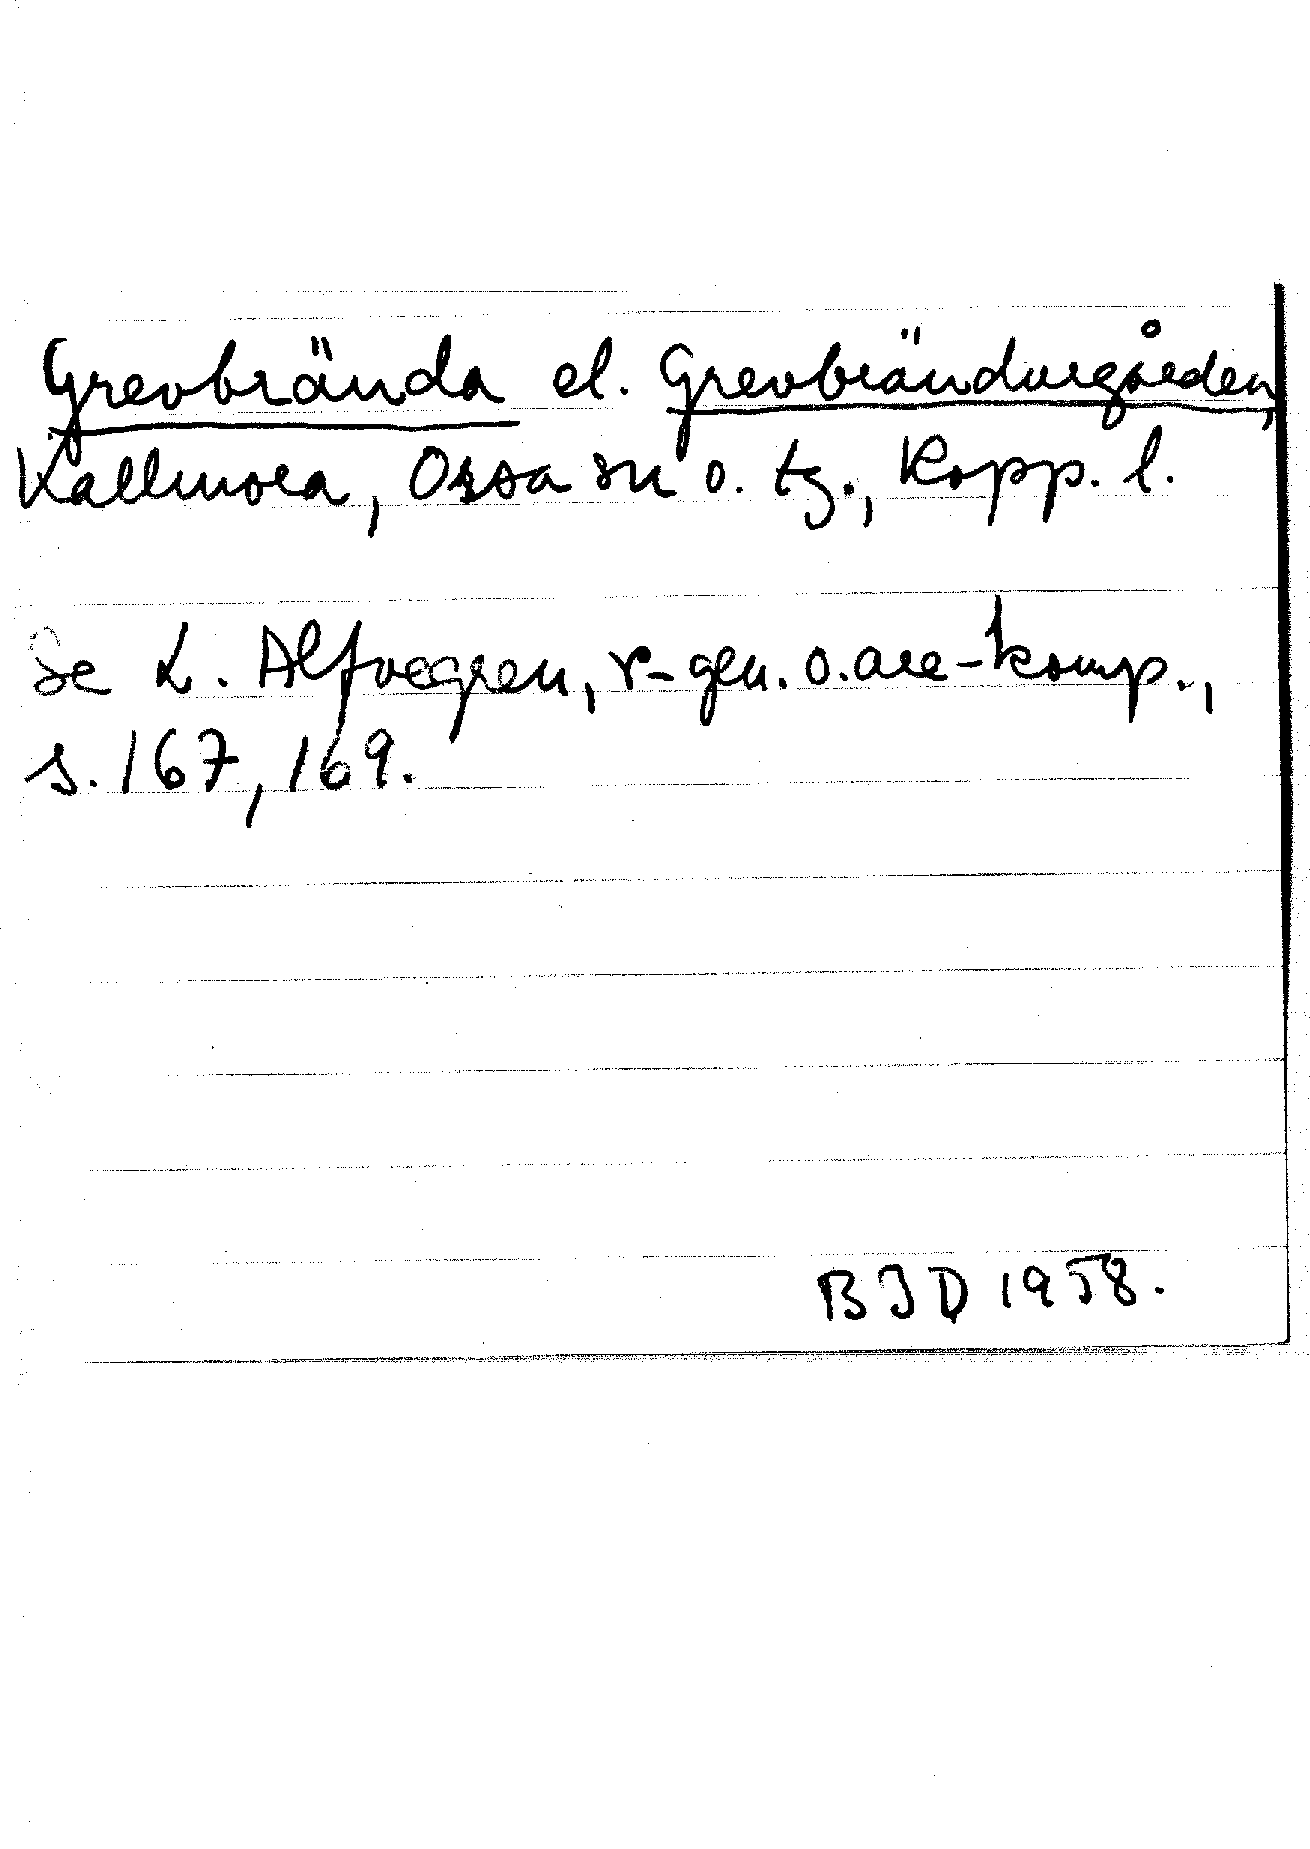 Grevbrända el. Grevbrändurgården,
Kallmora, Orsa sn o. tg., Kopp. l.
Se L. Alfvegren, r-gen. o. are-komp.,
s. 167, 169.
BJD 1958.